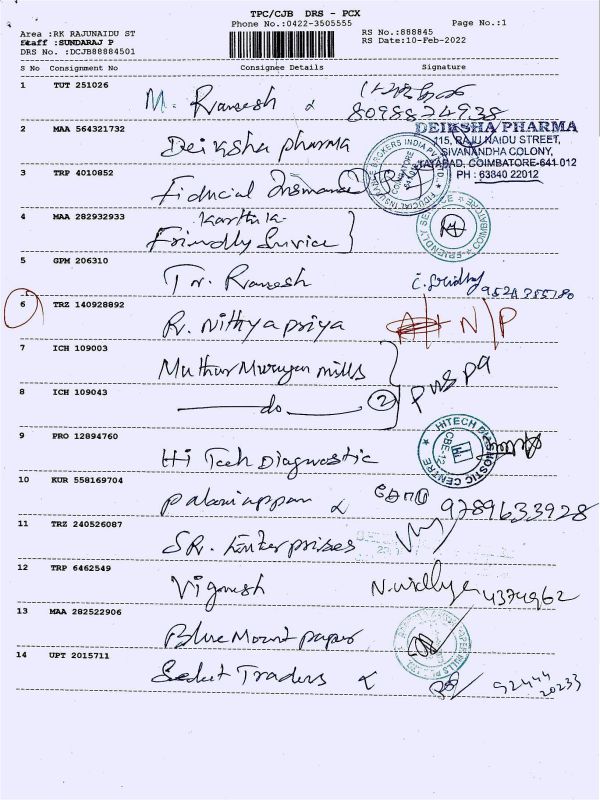 TPC/CJB DRS - PCX
Phone No.:0422-3505555
Page No.:1
Area :RK RAJUNAIDU ST
Staff :SUNDARAJ P
DRS No. :DCJB88884501
RS No.:888845
RS Date:10-Feb-2022
S No Consignment No Consignee Details Signature
1 TUT 251026
M. Ramesh
8098874938
2 MAA 564321732
Deiksha pharma
DEIKSHA PHARMA
115, RAJU NAIDU STREET,
SIVANANDHA COLONY,
TATABAD, COIMBATORE-641 012
PH : 63840 22012
3 TRP 4010852
Fiducial Insurance 1
4 MAA 282932933
Karthik
Friendly Service
FRIENDLY SERVICE COIMBATORE
5 GPM 206310
Tr. Ramesh
6 TRZ 140928892
R. Nithyapriya
N/P
7 ICH 109003
Muthur Murugan mills
8 ICH 109043
do 2
9 PRO 12894760
Hi Tech Diagnostic
HITECH DIAGNOSTIC CENTRE
CBE-12
10 KUR 558169704
Palaniappan
9789633928
11 TRZ 240526087
SR. Enterprises
12 TRP 6462549
Vignesh
N. vidhya 4374962
13 MAA 282522906
Blue Mount paper
14 UPT 2015711
Traders
92444
20233